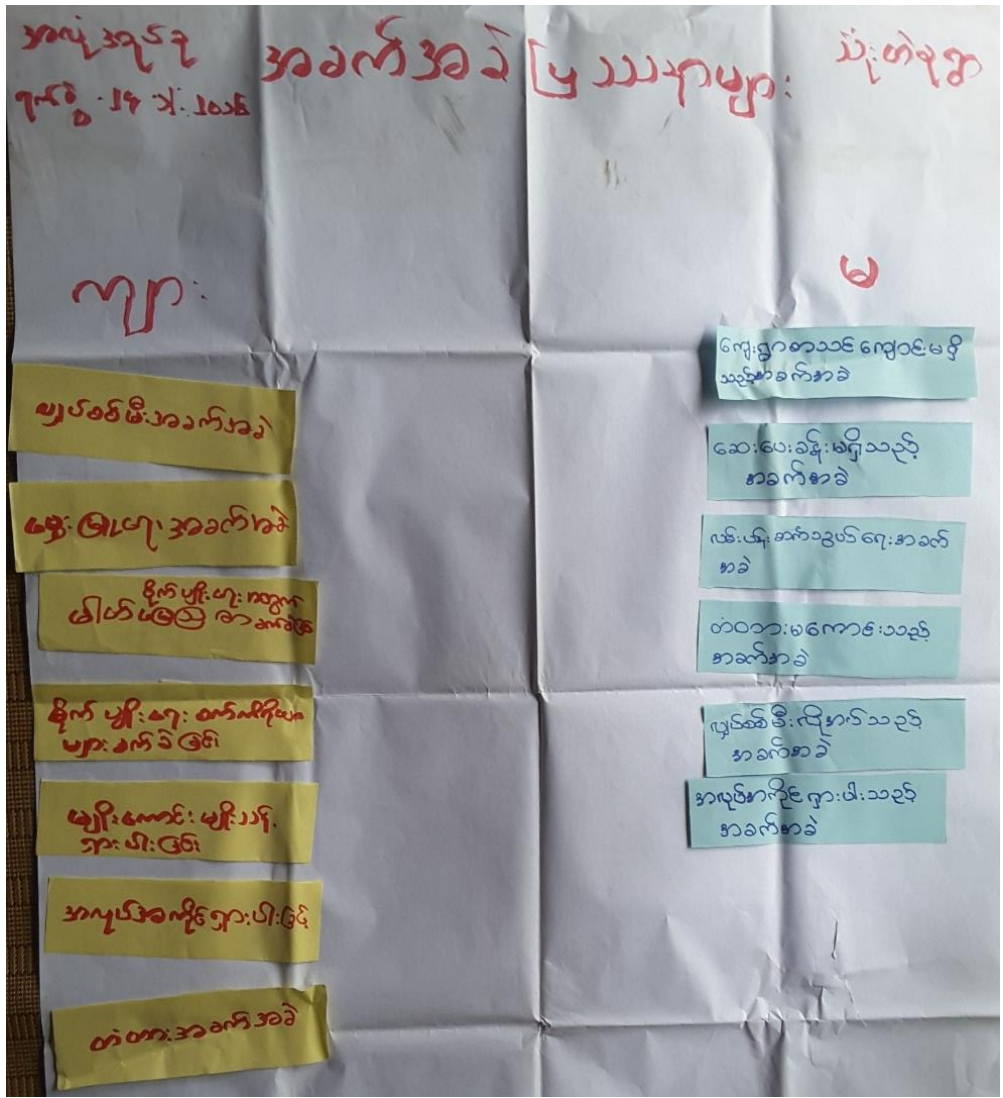 အခက်အခဲ ပြဿနာများ
သုံးတဲစုရွာ
ကျား
မ
လျှပ်စစ်မီးအခက်အခဲ
မွေးမြူရေး အခက်အခဲ
စိုက်ပျိုးရေးအတွက်
စိုက်ပျိုးရေး စက်ကိရိယာ
များ ခက်ခဲခြင်း
မျိုးကောင်းမျိုးသန့်
ရှားပါးခြင်း
အလုပ်အကိုင်ရှားပါးခြင်း
တံတားအခက်အခဲ
ကျေးရွာစာသင်ကျောင်းမရှိ
သည့်အခက်အခဲ
ဆေးပေးခန်းမရှိသည့်
အခက်အခဲ
လမ်းပန်းဆက်သွယ်ရေးအခက်
အခဲ
တံတားမကောင်းသည့်
အခက်အခဲ
လျှပ်စစ်မီးလိုအပ်သည့်
အခက်အခဲ
အလုပ်အကိုင်ရှားပါးသည့်
အခက်အခဲ